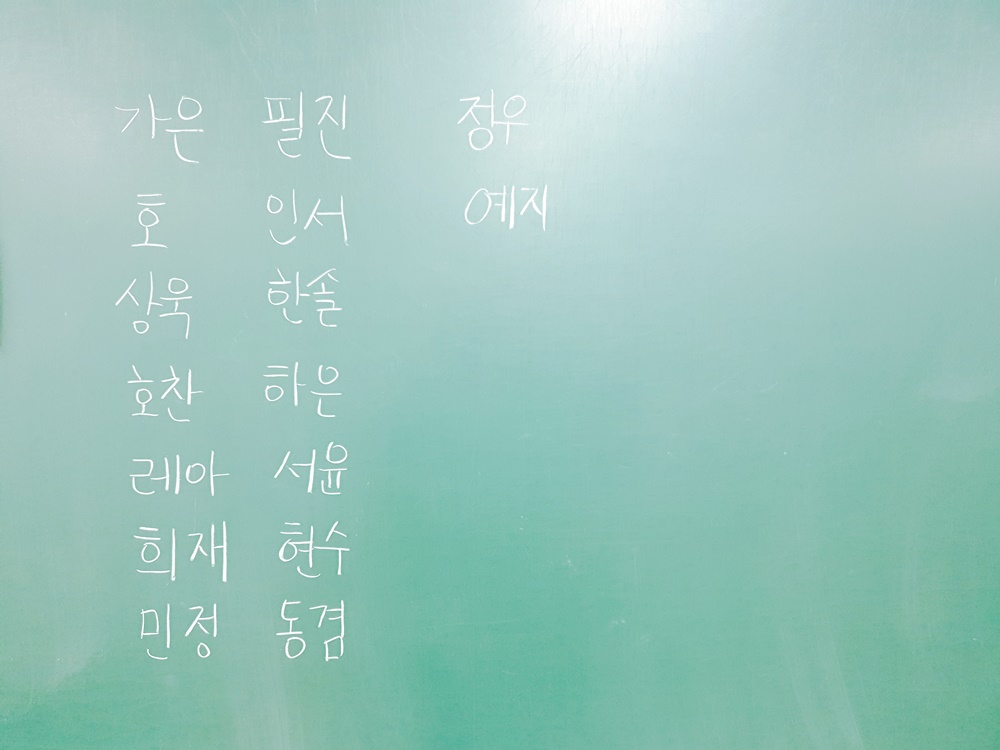 가은 필진 정우
호 인서 예지
상욱 한솔
호찬 하은
레아 서윤
희재 현수
민정 동겸